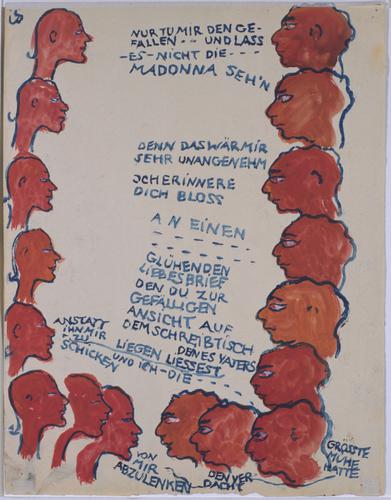 NUR TU MIR DEN GE-
FALLEN - - UND LASS
-ES-NICHT DIE - - -
MADONNA SEH'N
DENN DAS WÄR MIR
SEHR UNANGENEHM
ICH ERINNERE
DICH BLOSS
AN EINEN
GLÜHENDEN
LIEBESBRIEF
DEN DU ZUR
GEFÄLLIGEN
ANSICHT AUF
DEM SCHREIBTISCH
DEINES VATERS
LIEGEN LIESSEST
ANSTATT
IHN MIR
ZU
SCHICKEN
UND ICH - DIE - - -
GRÖSSTE
MÜHE
HATTE
DEN VER
DACHT
VON
MIR
ABZULENKEN